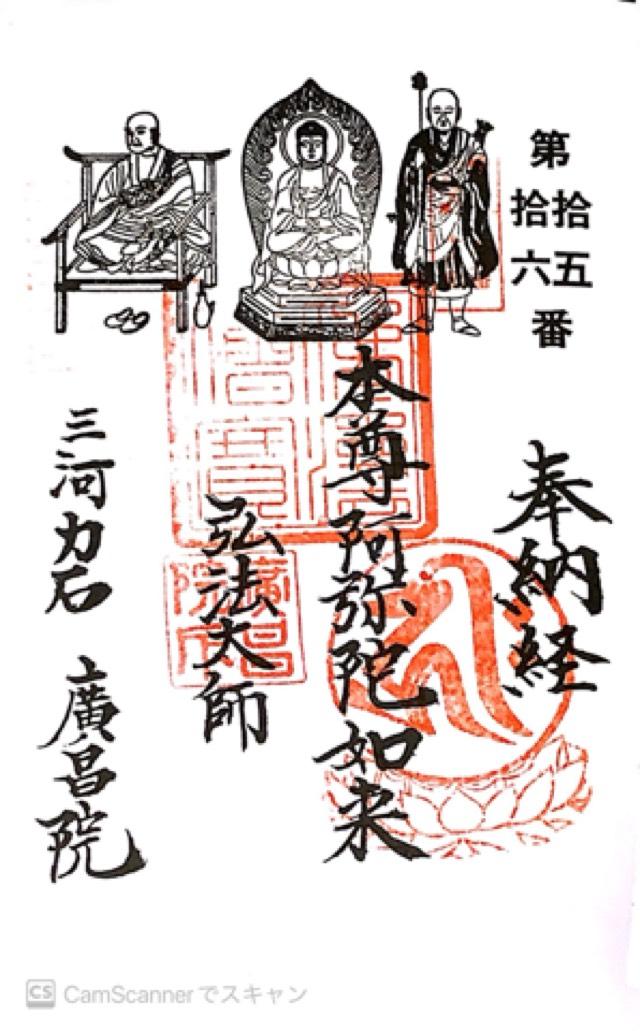 第拾五番
拾六
奉納経
本尊阿弥陀如来
弘法大師
三河力石 廣昌院
廣昌院印
CS CamScannerでスキャン